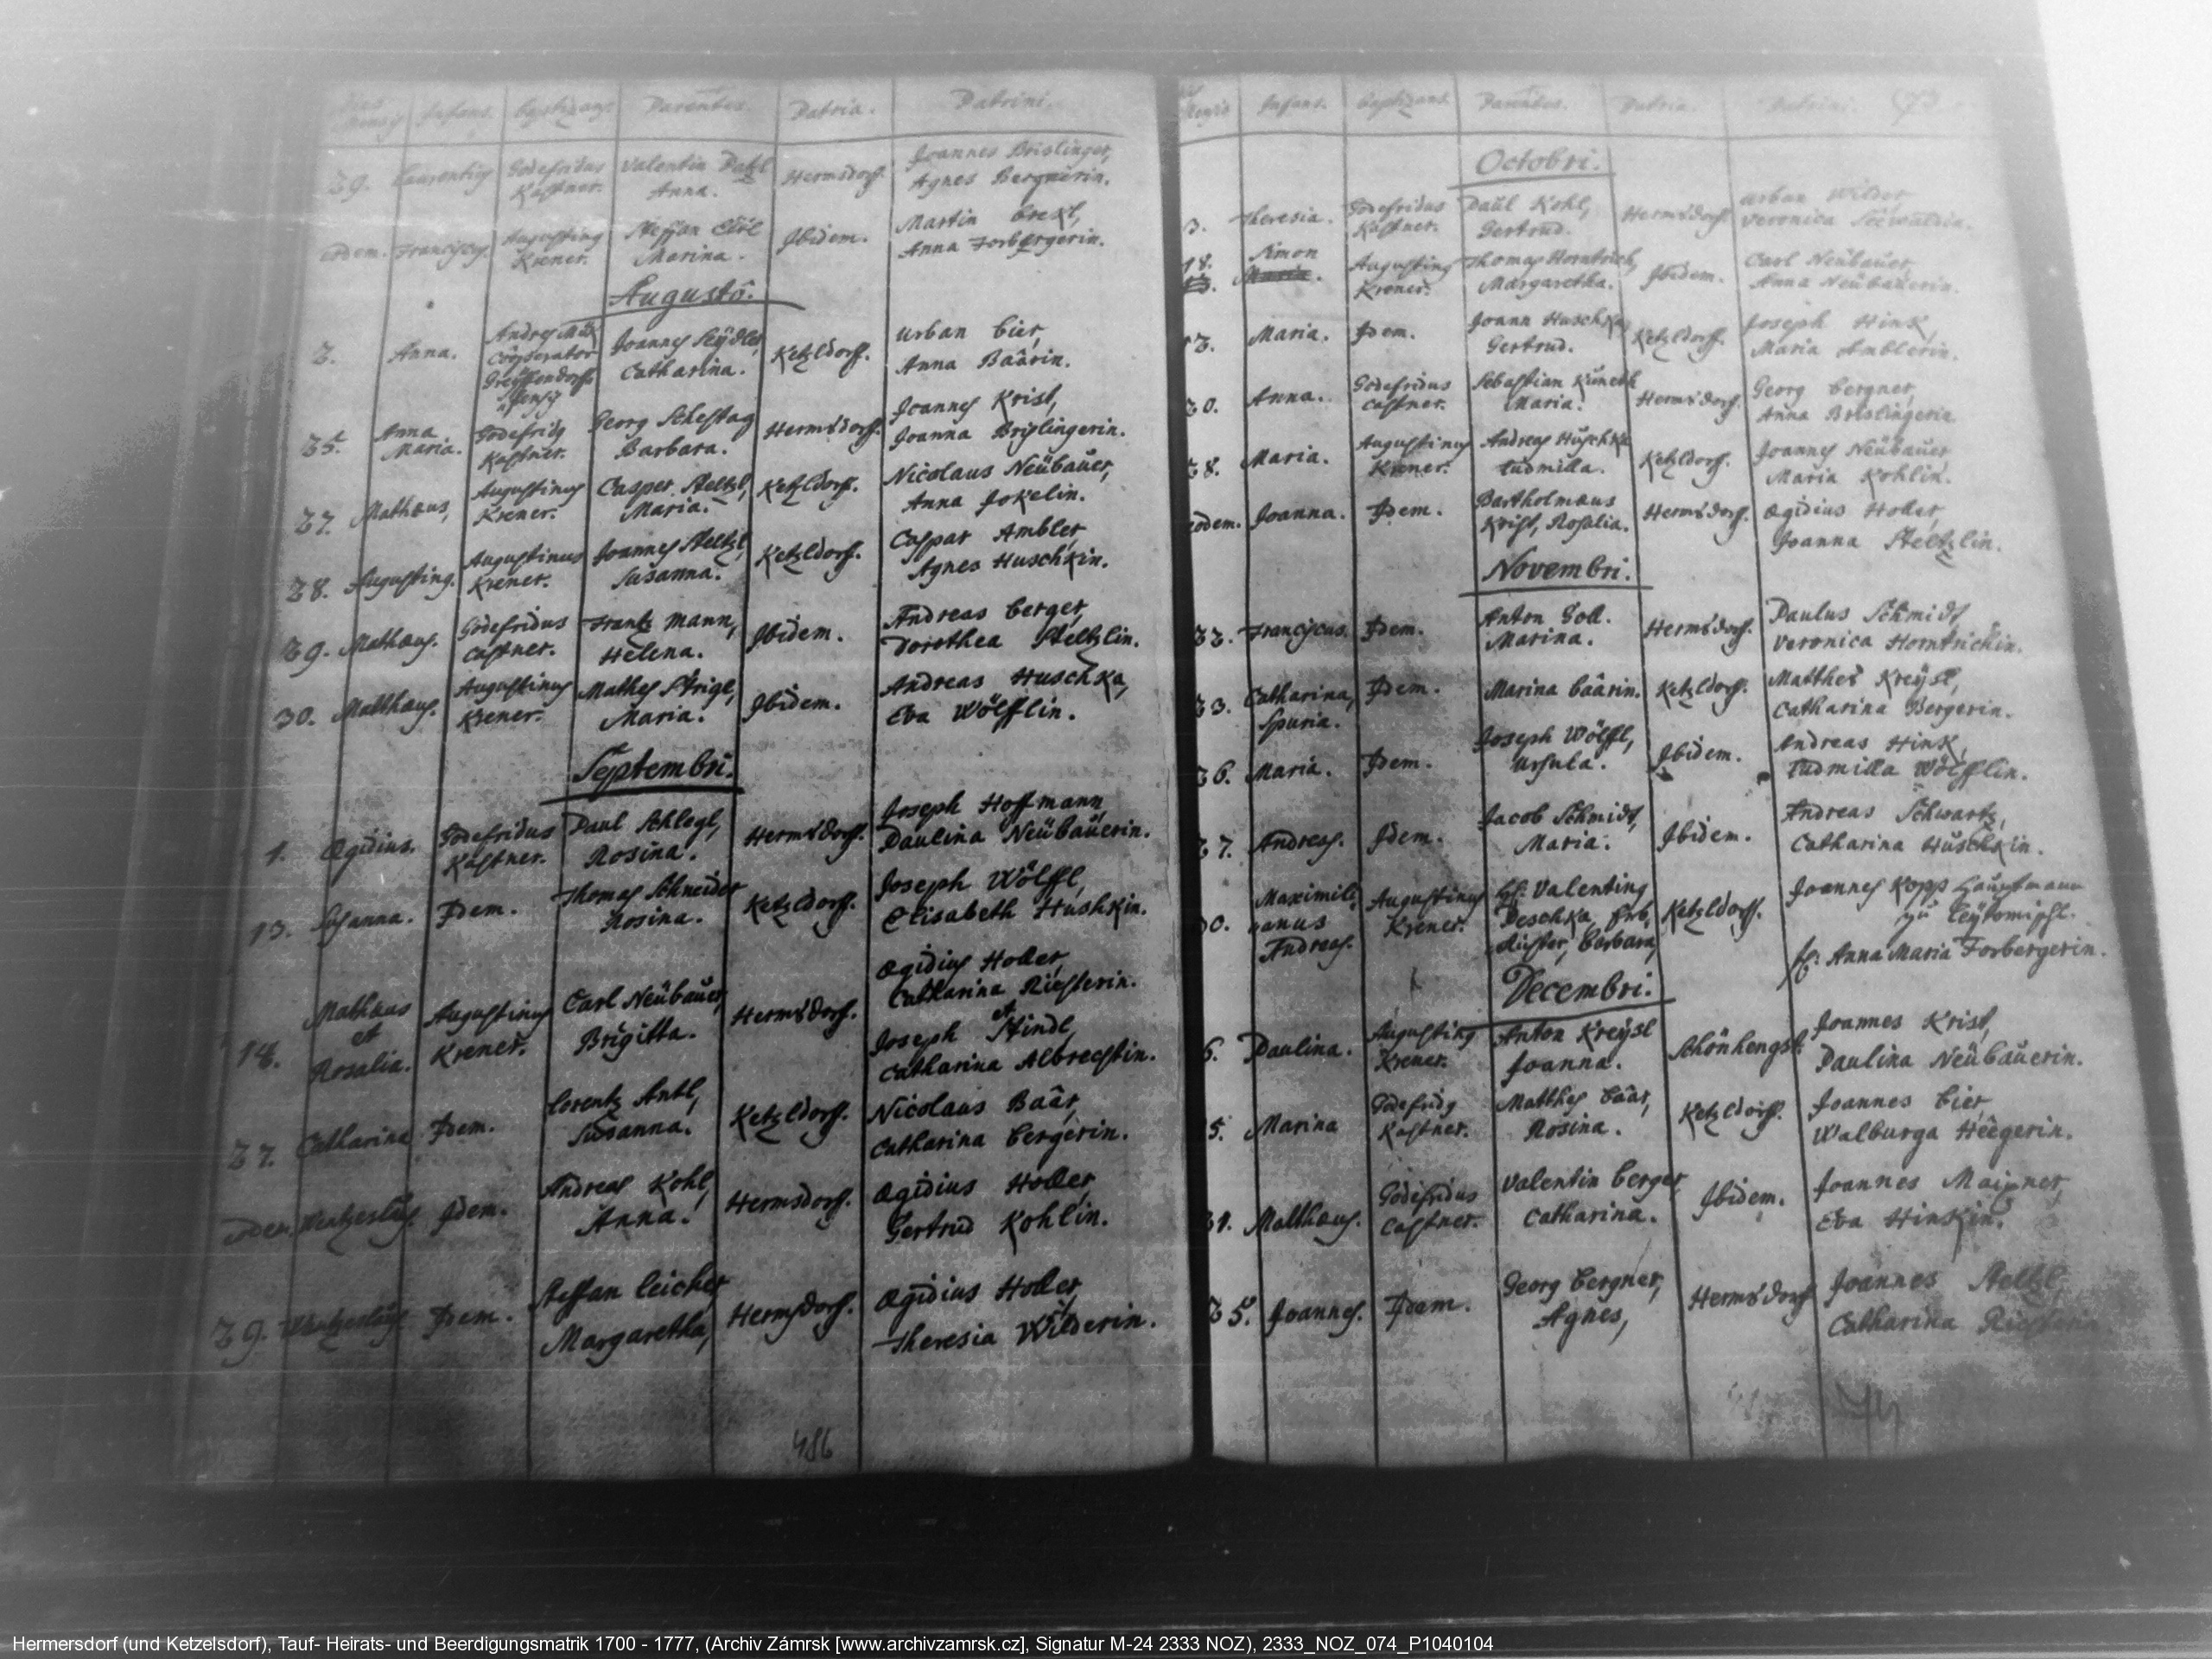 Infans. Baptizans. Parentes. Patria. Patrini.
29. Laurentius Godefridus Kastner. Valentin Anna. Hermsdorff. Joannes Brislinger, Agnes Bergnerin.
eodem. Franciscus. Augustinus Krener. Steffan Marina. Ibidem. Martin Anna Forbergerin.
Augusto.
2. Anna. Cooperator Joannes Seÿdler, Catharina. Ketzldorff. Urban Bier, Anna Baärin.
25. Anna Maria. Godefridus Kastner. Georg Schestag Barbara. Hermsdorff. Joannes Krist, Joanna Brislingerin.
27. Mathæus, Augustinus Krener. Casper Steltzl, Maria. Ketzldorff. Nicolaus Neübaüer, Anna Jokelin.
28. Augustinus. Augustinus Krener. Joannes Steltzl, Susanna. Ketzldorff. Caspar Ambler, Agnes Huschkin.
29. Mathæus. Godefridus Castner. Frantz Mann, Helena. Ibidem. Andreas Berger, Dorothea Steltzlin.
30. Matthæus. Augustinus Krener. Mathes Strigl, Maria. Ibidem. Andreas Huschka, Eva Wölfflin.
Septembri.
1. Ægidius. Godefridus Kastner. Paul Schlegl, Rosina. Hermsdorff. Joseph Hoffmann, Paulina Neübaüerin.
13. Susanna. Idem. Thomas Schneider Rosina. Ketzldorff. Joseph Wölffl, Elisabeth Hushkin.
18. Mathæus et Rosalia. Augustinus Krener. Carl Neübaüer, Brigitta. Hermsdorff. Ægidius Holler, Catharina Richterin. et Joseph Stindl, Catharina Albrechtin.
27. Catharina Idem. Lorentz Antl, Susanna. Ketzldorff. Nicolaus Baär, Catharina Bergerin.
eodem. Wentzeslaus Idem. Andreas Kohl, Anna. Hermsdorff. Ægidius Holler, Gertrud Kohlin.
29. Wentzeslaus Idem. Steffan Leicher Margaretha, Hermsdorff. Ægidius Holler, Theresia Wilderin.
486
Infans. Baptizans. Parentes. Patria. Patrini.
Octobri.
3. Theresia. Godefridus Kastner. Paul Kohl, Gertrud. Hermsdorff. Urban Wilder, Veronica
18. Simon Augustinus Krener. Thomas Horntrich, Margaretha. Ibidem. Carl Neübaüer, Anna Neübaüerin.
Maria. Idem. Joann Huschka, Gertrud. Ketzldorff. Joseph Hink, Maria Amblerin.
20. Anna. Godefridus Castner. Sebastian Kuneth Maria. Hermsdorff. Georg Bergner, Anna Brislingerin.
28. Maria. Augustinus Krener. Andreas Huschka Ludmilla. Ketzldorff. Joannes Neübaüer Maria Kohlin.
eodem. Joanna. Idem. Bartholmæus Krist, Rosalia. Hermsdorff. Ægidius Holler, Joanna Steltzlin.
Novembri.
22. Franciscus. Idem. Anton Goll. Marina. Hermsdorff. Paulus Schmidt, Veronica Horntrichin.
23. Catharina, Spuria. Idem. Marina Baärin. Ketzldorff. Matthes Kreÿsl, Catharina Bergerin.
26. Maria. Idem. Joseph Wölffl, Ursula. Ibidem. Andreas Hink, Ludmilla Wölfflin.
27. Andreas. Idem. Jacob Schmidt, Maria. Ibidem. Andreas Schwartz, Catharina Huschkin.
30. Maximilianus Andreas. Augustinus Krener. H: Valentinus Peschka, Erb Richter, Barbara, Ketzldorff. Joannes Kopp Hauptmann zu Leÿtomischl. F: Anna Maria Forbergerin.
Decembri.
6. Paulina. Augustinus Krener. Anton Kreÿsl Joanna. Schönhengst. Joannes Krist, Paulina Neübaüerin.
15. Marina Godefridus Kastner. Matthes Baär, Rosina. Ketzldorff. Joannes Bier, Walburga Heegerin.
21. Matthæus. Godefridus Castner. Valentin Berger, Catharina. Ibidem. Joannes Maixner, Eva Hinkin.
25. Joannes. Idem. Georg Bergner, Agnes, Hermsdorff Joannes Steltzl, Catharina Richterin
Hermersdorf (und Ketzelsdorf), Tauf- Heirats- und Beerdigungsmatrik 1700 - 1777, (Archiv Zámrsk [www.archivzamrsk.cz], Signatur M-24 2333 NOZ), 2333_NOZ_074_P1040104